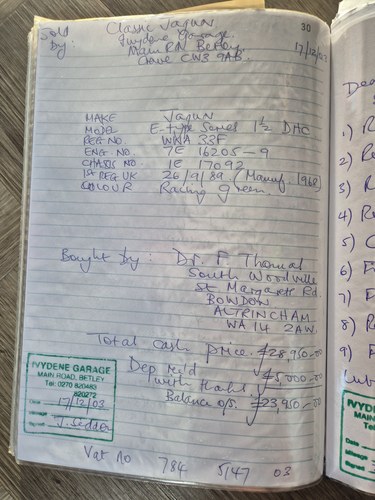 Sold by: Classic Jaguar 30
Ivydene Garage 17/12/03
Main Rd Betley
Crewe CW3 9AB.
MAKE Jaguar
MODEL E-type Series 1½ DHC
REG NO. WNA 33F
ENG NO 7E 16205-9
CHASIS NO. 1E 17092
1st REG UK 26/9/89 (Manuf 1968)
COLOUR Racing Green
Bought by: Dr. F Thomas
South Woodville
St Margarets Rd
BOWDON
ALTRINCHAM
WA14 2AW.
Total cash price £28,950-00
Dep rec'd
with thanks £5,000-00
Balance o/s. £23,950-00
IVYDENE GARAGE
MAIN ROAD, BETLEY
Tel: 0270 820483
820272
Date 17/12/03
Mileage
Signed J. Seddon
Vat no 784 5147 03
Dea
1)
2)
3)
4)
5)
6)
7)
8)
9)
IVYDE
MAIN
Tel
Date
Mileage
Signed